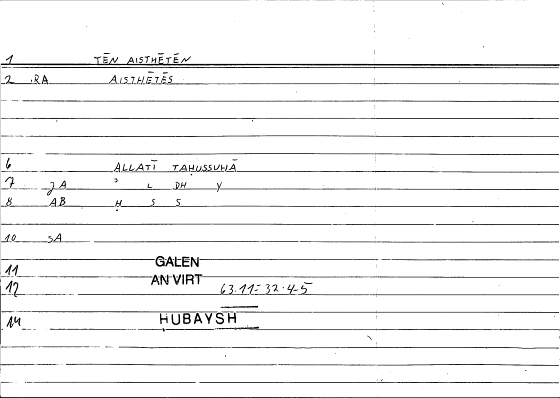 1 TĒN AISTHĒTĒN
2 .RA AISTHĒTĒS
6 ALLATĪ TAḤUSSUHĀ
7 JA ʾ L DH Y
8 AB Ḥ S S
10 SA
11 GALEN
12 AN VIRT 63.11=32.4-5
14 HUBAYSH